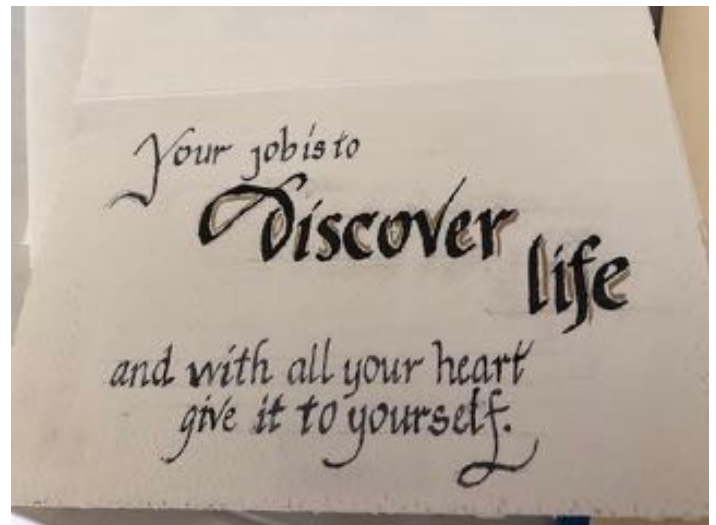 Your job is to
discover
life
and with all your heart
give it to yourself.